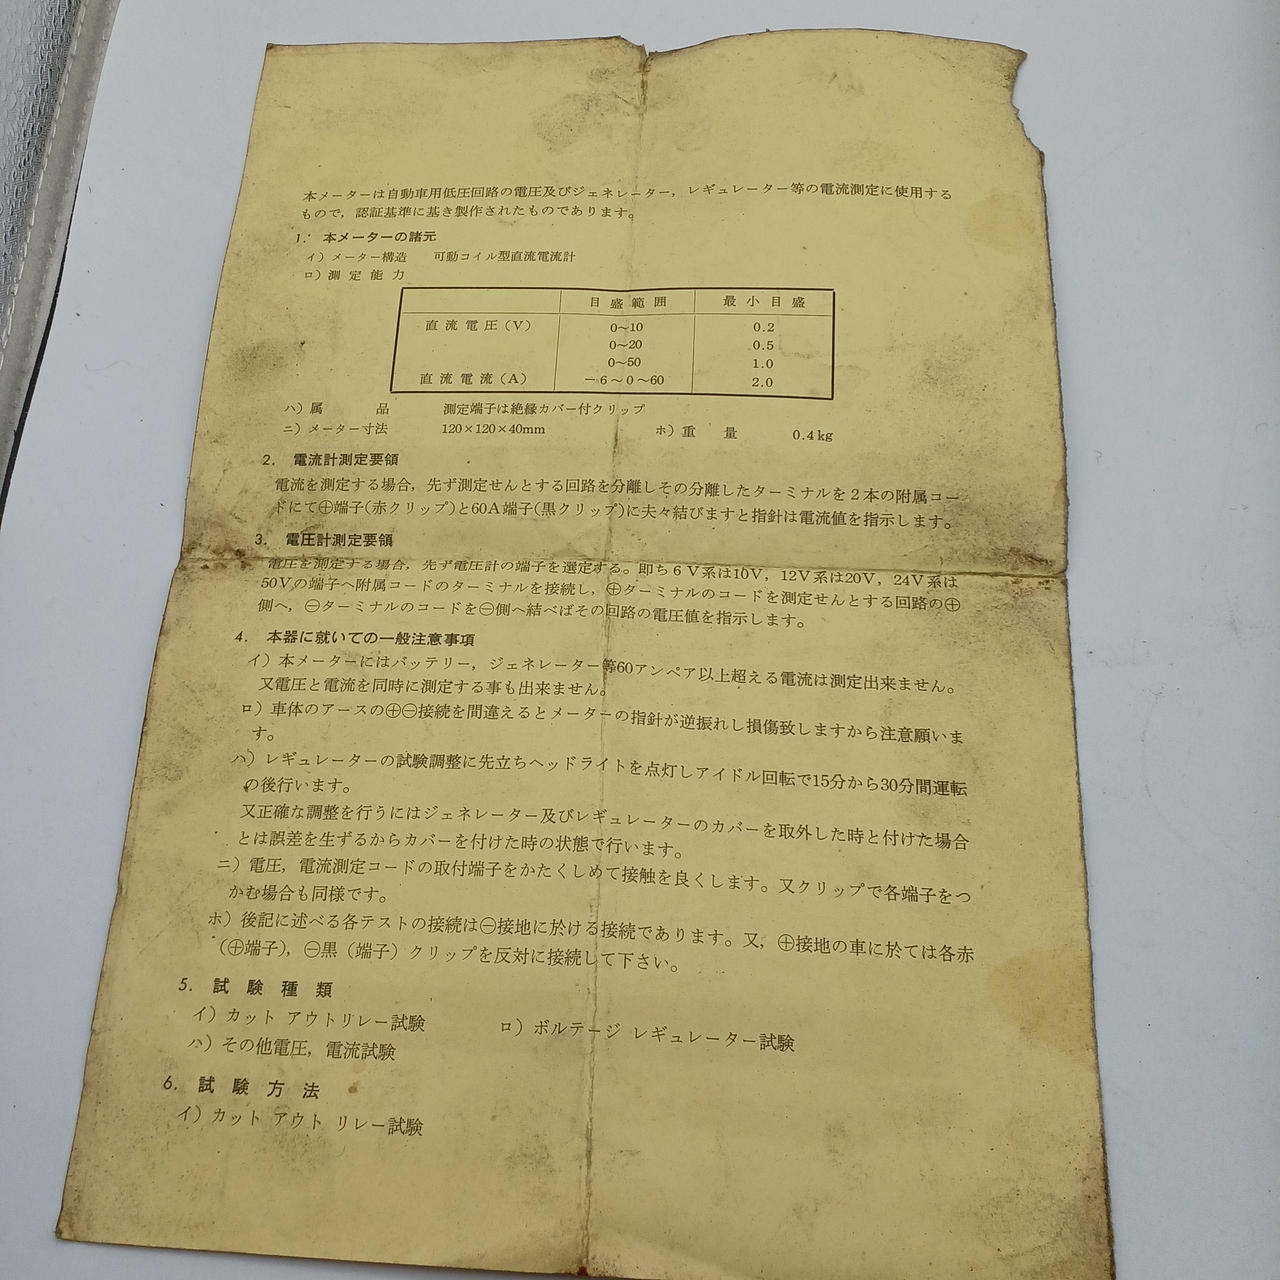 本メーターは自動車用低圧回路の電圧及びジェネレーター，レギュレーター等の電流測定に使用する
もので，認証基準に基き製作されたものであります。
1. 本メーターの諸元
イ）メーター構造　可動コイル型直流電流計
ロ）測定能力
目盛範囲　最小目盛
直流電圧（V）　0～10　0.2
0～20　0.5
0～50　1.0
直流電流（A）　－6～0～60　2.0
ハ）属品　測定端子は絶縁カバー付クリップ
ニ）メーター寸法　120×120×40mm　ホ）重量　0.4kg
2. 電流計測定要領
電流を測定する場合，先ず測定せんとする回路を分離しその分離したターミナルを2本の附属コー
ドにて⊕端子(赤クリップ)と60A端子(黒クリップ)に夫々結びますと指針は電流値を指示します。
3. 電圧計測定要領
電圧を測定する場合，先ず電圧計の端子を選定する。即ち6V系は10V，12V系は20V，24V系は
50Vの端子へ附属コードのターミナルを接続し，⊕ターミナルのコードを測定せんとする回路の⊕
側へ，⊖ターミナルのコードを⊖側へ結べばその回路の電圧値を指示します。
4. 本器に就いての一般注意事項
イ）本メーターにはバッテリー，ジェネレーター等60アンペア以上超える電流は測定出来ません。
又電圧と電流を同時に測定する事も出来ません。
ロ）車体のアースの⊕⊖接続を間違えるとメーターの指針が逆振れし損傷致しますから注意願いま
す。
ハ）レギュレーターの試験調整に先立ちヘッドライトを点灯しアイドル回転で15分から30分間運転
の後行います。
又正確な調整を行うにはジェネレーター及びレギュレーターのカバーを取外した時と付けた場合
とは誤差を生ずるからカバーを付けた時の状態で行います。
ニ）電圧，電流測定コードの取付端子をかたくしめて接触を良くします。又クリップで各端子をつ
かむ場合も同様です。
ホ）後記に述べる各テストの接続は⊖接地に於ける接続であります。又，⊕接地の車に於ては各赤
（⊕端子），⊖黒（端子）クリップを反対に接続して下さい。
5. 試験種類
イ）カット アウトリレー試験　ロ）ボルテージ レギュレーター試験
ハ）その他電圧，電流試験
6. 試験方法
イ）カット アウト リレー試験